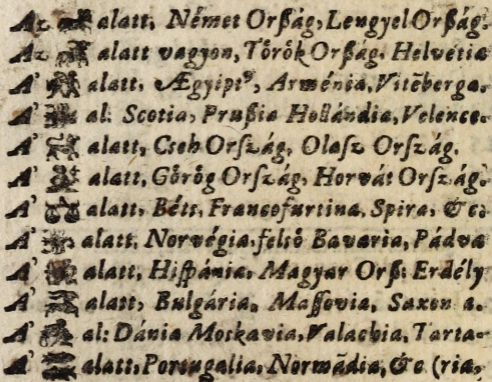 Az alatt, Német Orßág, Lengyel Orßág.
Az alatt vagyon, Tőrők Orßág. Helvetia
A' alatt, Ægyiptꝰ, Arménia, Vitēberga.
A' al: Scotia, Prußia Hollándia, Velence.
A' alatt, Cseh Orſzág, Olaſz Orſzág.
A' alatt, Gőrőg Orſzág, Horvát Orſzág.
A' alatt, Bétt, Francofurtina, Spira, &c.
A' alatt, Norvégia, felső Bavaria, Pádva
A' alatt, Hiſpánia, Magyar Orß: Erdély
A' alatt, Bulgária, Maſſovia, Saxon a.
A' al: Dánia Moskavia, Valachia, Tarta-
A' alatt, Portugalia, Normādia, &c (ria,